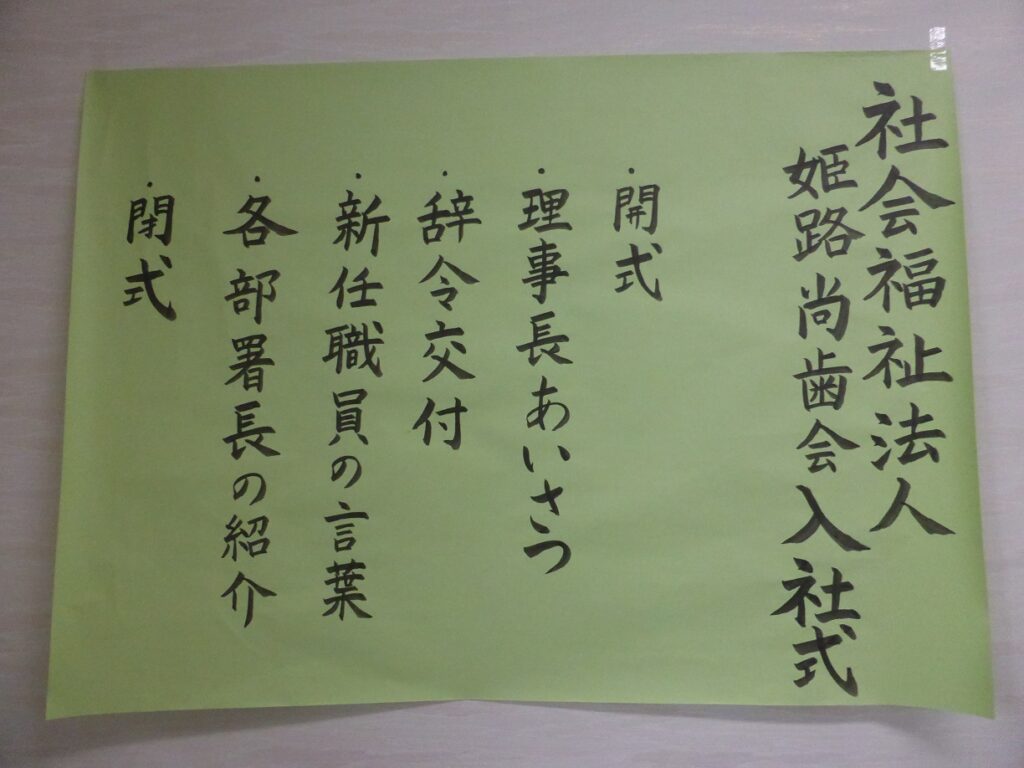 社会福祉法人
姫路尚歯会入社式
・開式
・理事長あいさつ
・辞令交付
・新任職員の言葉
・各部署長の紹介
・閉式